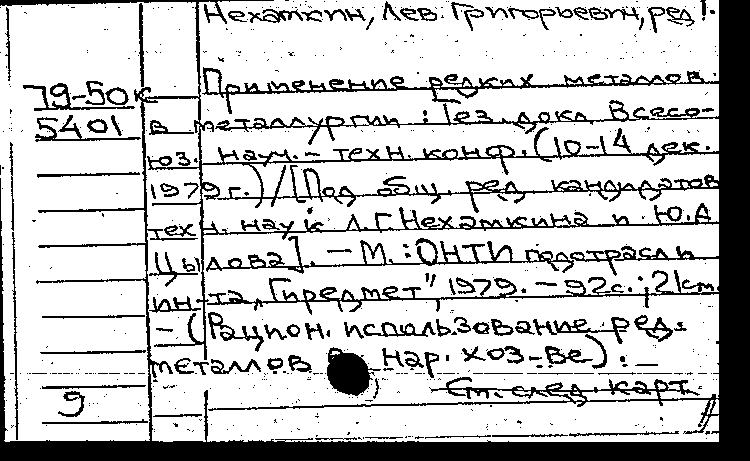 Нехамкин, Лев Григорьевич, ред.
79-50к
5401
Применение редких металлов
в металлургии : Тез. докл. Всесо-
юз. науч.-техн. конф. (10-14 дек.
1979г.) / [Под общ. ред. кандидатов
техн. наук Л.Г. Нехамкина и Ю.А
Цылова]. — М. : ОНТИ подотрасли
ин-та "Гиредмет", 1979. — 92с.; 21см.
— (Рацион. использование ред.
металлов в нар. хоз-ве). —
См. след. карт.
9